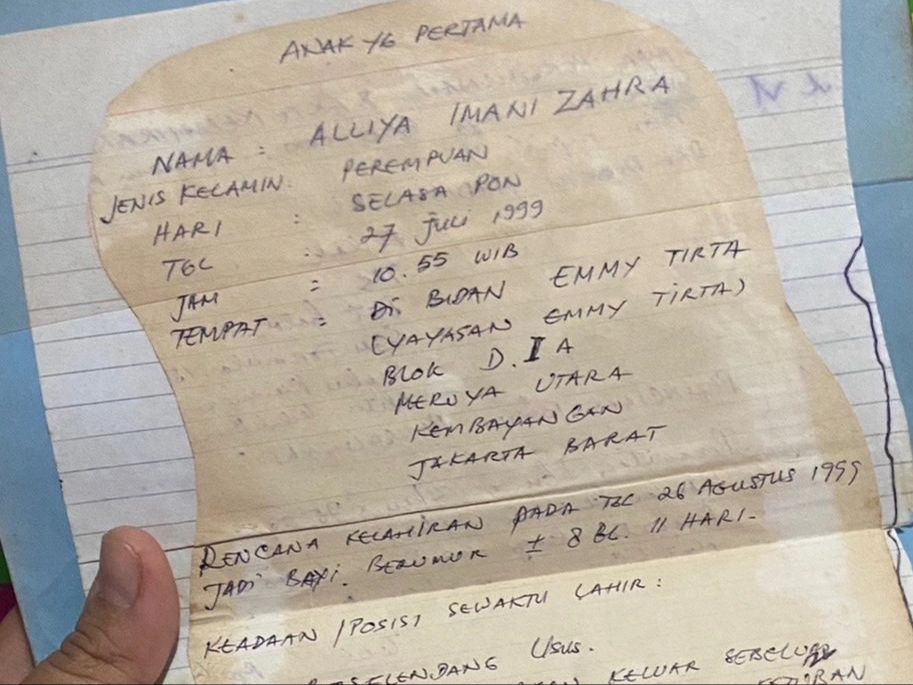 ANAK YG PERTAMA
NAMA : ALLIYA IMANI ZAHRA
JENIS KELAMIN : PEREMPUAN
HARI : SELASA PON
TGL : 27 juli 1999
JAM : 10.55 WIB
TEMPAT : Di BIDAN EMMY TIRTA
(YAYASAN EMMY TIRTA)
BLOK D.I A
MERUYA UTARA
KEMBANGAN
JAKARTA BARAT
RENCANA KELAHIRAN PADA TGL 26 AGUSTUS 1999
JADI BAYI. BERUMUR ± 8 BL. 11 HARI-
KEADAAN / POSISI SEWAKTU LAHIR :
BERSELENDANG USUS.
KELUAR SEBELUM